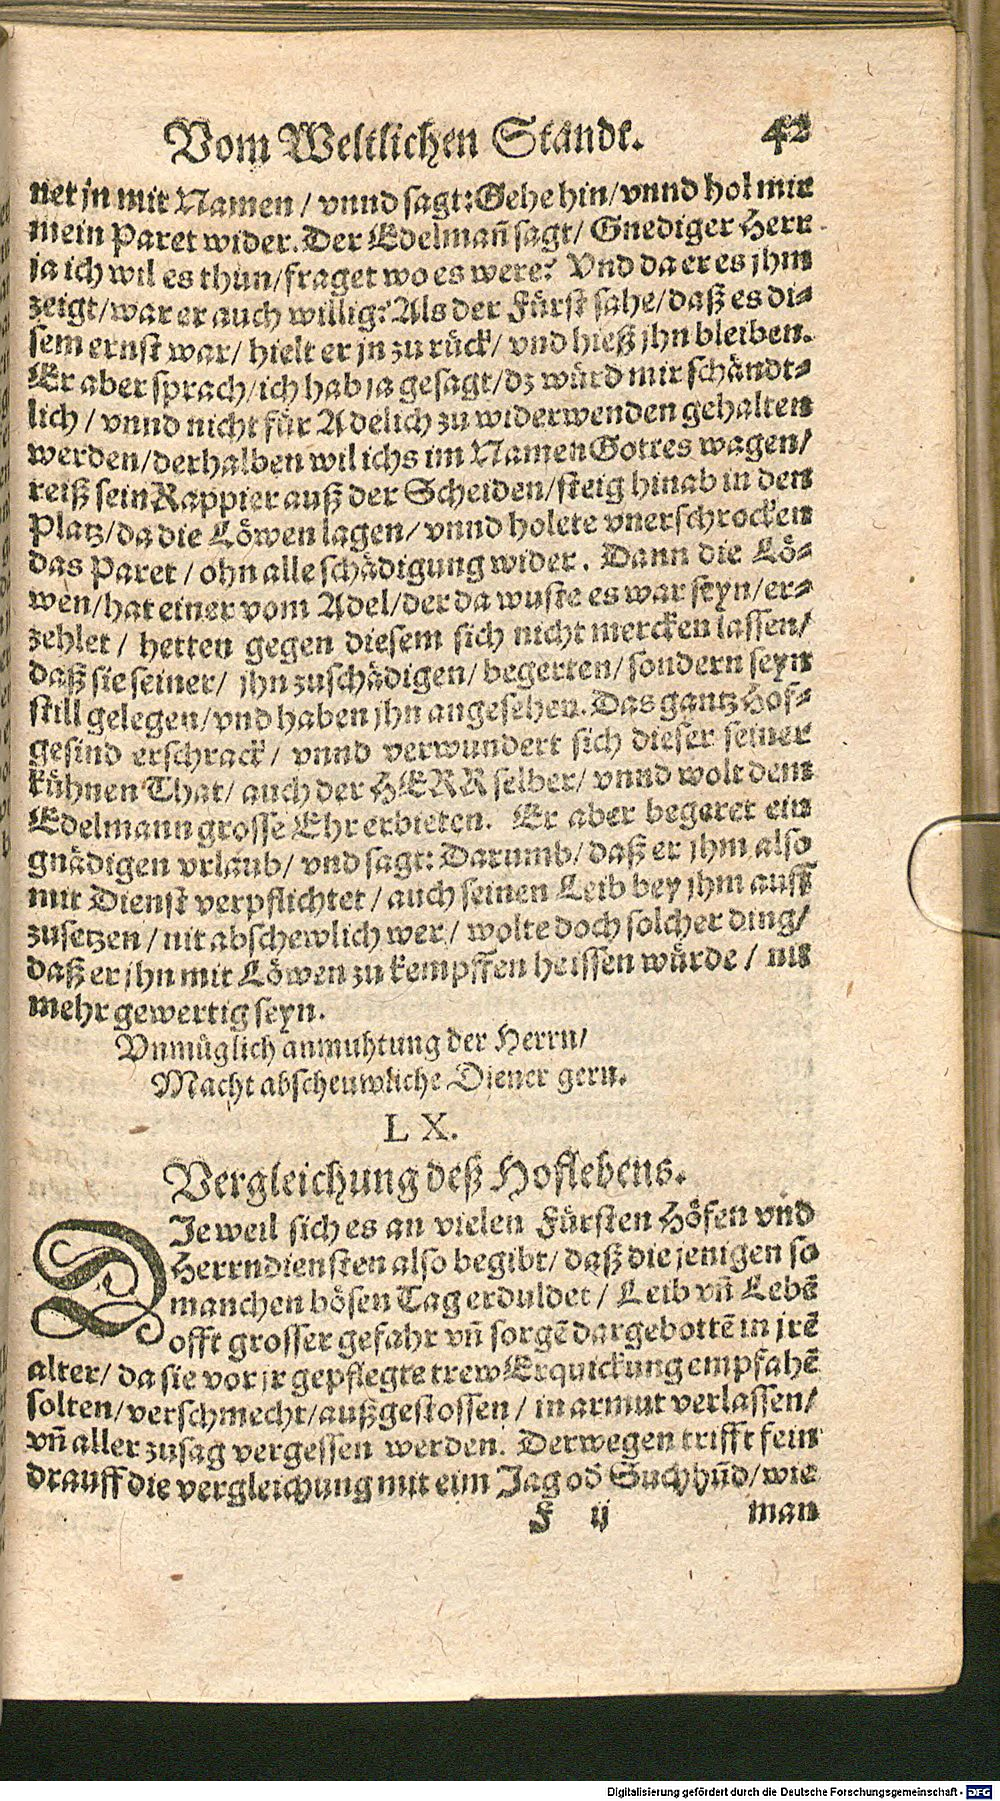 Vom Weltlichen Stande. 42
net jn mit Namen / vnnd sagt: Gehe hin / vnnd hol mir
mein Paret wider. Der Edelmañ sagt / Gnediger Herr
ja ich wil es thun / fraget wo es were? Vnd da er es jhm
zeigt / war er auch willig: Als der Fürst sahe / daß es di⸗
sem ernst war / hielt er jn zu rück / vnd hieß jhn bleiben.
Er aber sprach / ich hab ja gesagt / dz würd mir schändt⸗
lich / vnnd nicht für Adelich zu widerwenden gehalten
werden / derhalben wil ichs im Namen Gottes wagen /
reiß sein Rappier auß der Scheiden / steig hinab in den
Platz / da die Löwen lagen / vnnd holete vnerschrocken
das Paret / ohn alle schädigung wider. Dann die Lö⸗
wen / hat einer vom Adel / der da wuste es war seyn / er⸗
zehlet / hetten gegen diesem sich nicht mercken lassen /
daß sie seiner / jhn zuschädigen / begerten / sondern seyn
still gelegen / vnd haben jhn angesehen. Das gantz Hof⸗
gesind erschrack / vnnd verwundert sich dieser seiner
kühnen That / auch der HERR selber / vnnd wolt dem
Edelmann grosse Ehr erbieten. Er aber begeret ein
gnädigen vrlaub / vnd sagt: Darumb / daß er jhm also
mit Dienst verpflichtet / auch seinen Leib bey jhm auff
zusetzen / nit abschewlich wer / wolte doch solcher ding /
daß er jhn mit Löwen zu kempffen heissen würde / nit
mehr gewertig seyn.
Vnmüglich anmuhtung der Herrn /
Macht abscheuwliche Diener gern.
LX.
Vergleichung deß Hoflebens.
DJeweil sich es an vielen Fürsten Höfen vnd
Herrndiensten also begibt / daß die jenigen so
manchen bösen Tag erduldet / Leib vñ Lebē
offt grosser gefahr vñ sorgē dargebottē in jrē
alter / da sie vor jr gepflegte trew Erquickung empfahē
solten / verschmecht / außgestossen / in armut verlassen /
vñ aller zusag vergessen werden. Derwegen trifft fein
drauff die vergleichung mit eim Jag od̄ Suchhūd / wie
F ij man
Digitalisierung gefördert durch die Deutsche Forschungsgemeinschaft - DFG